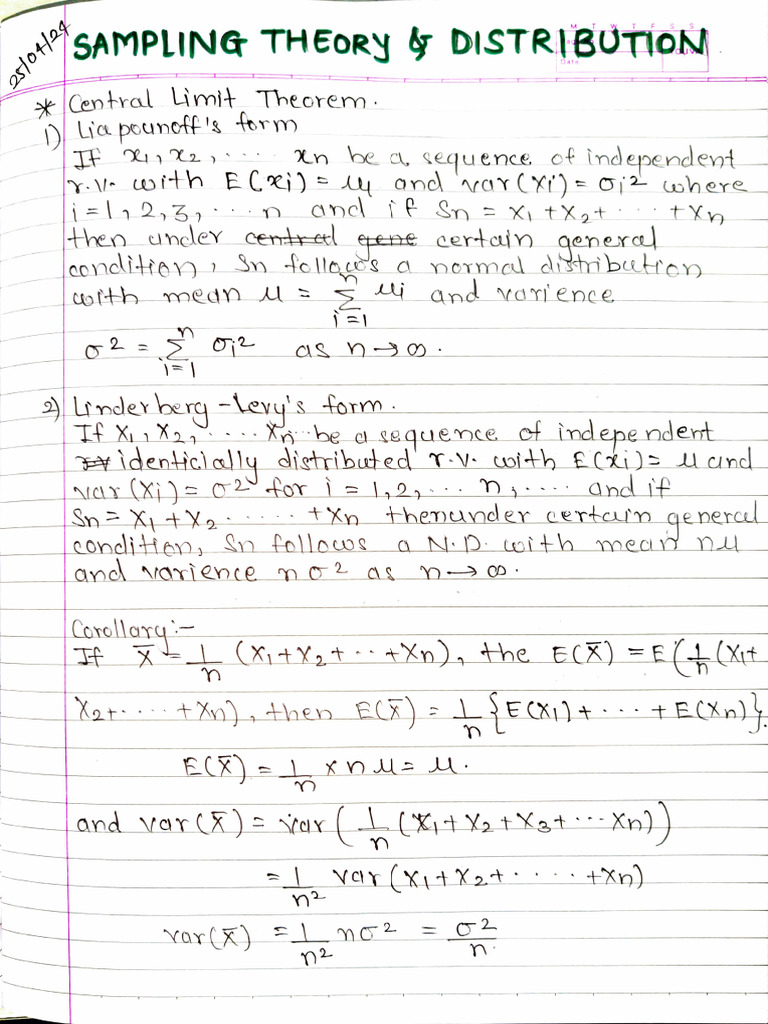 25/04/24
SAMPLING THEORY & DISTRIBUTION
M T W T F S S
Date
* Central Limit Theorem.
1) Liapounoff's form
If x₁, x₂, .... xn be a sequence of independent
r.v. with E(xi) = μi and var(xi) = σi² where
i = 1, 2, 3, ... n and if Sn = x₁ + x₂ + .... + xn
then under central gene certain general
condition, Sn follows a normal distribution
with mean μ = n∑i=1 μi and varience
σ² = n∑i=1 σi² as n → ∞.
2) Linderberg - Levy's form.
If x₁, x₂, .... xn ... be a sequence of independent
r.v identicially distributed r.v. with E(xi) = μ and
var(xi) = σ² for i = 1, 2, ... n, .... and if
Sn = x₁ + x₂ ...... + xn then under certain general
condition, Sn follows a N.D. with mean nμ
and varience nσ² as n → ∞.
Corollary:-
If X̄ = 1/n (x₁ + x₂ + ... + xn), the E(X̄) = E(1/n (x₁ +
x₂ + ..... + xn), then E(X̄) = 1/n {E(x₁) + .... + E(xn)}.
E(X̄) = 1/n × nμ = μ.
and var(X̄) = var(1/n (x₁ + x₂ + x₃ + ... xn))
= 1/n² var(x₁ + x₂ + ..... + xn)
var(X̄) = 1/n² nσ² = σ²/n.